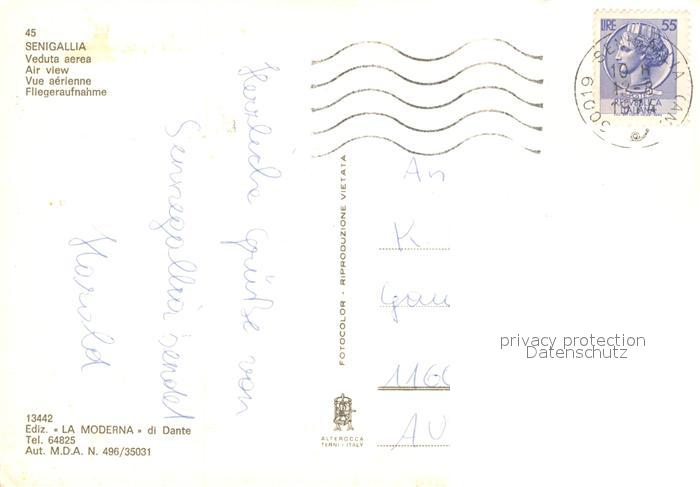 45
SENIGALLIA
Veduta aerea
Air view
Vue aérienne
Fliegeraufnahme
Herzliche Grüße von
Sennegallia sendet
Harold
13442
Ediz. « LA MODERNA » di Dante
Tel. 64825
Aut. M.D.A. N. 496/35031
FOTOCOLOR - RIPRODUZIONE VIETATA
ALTEROCCA
TERNI - ITALY
LIRE 55
REPVBBLICA
ITALIANA
60019 SENIGALLIA (AN)
An
K.
116
AU
privacy protection
Datenschutz